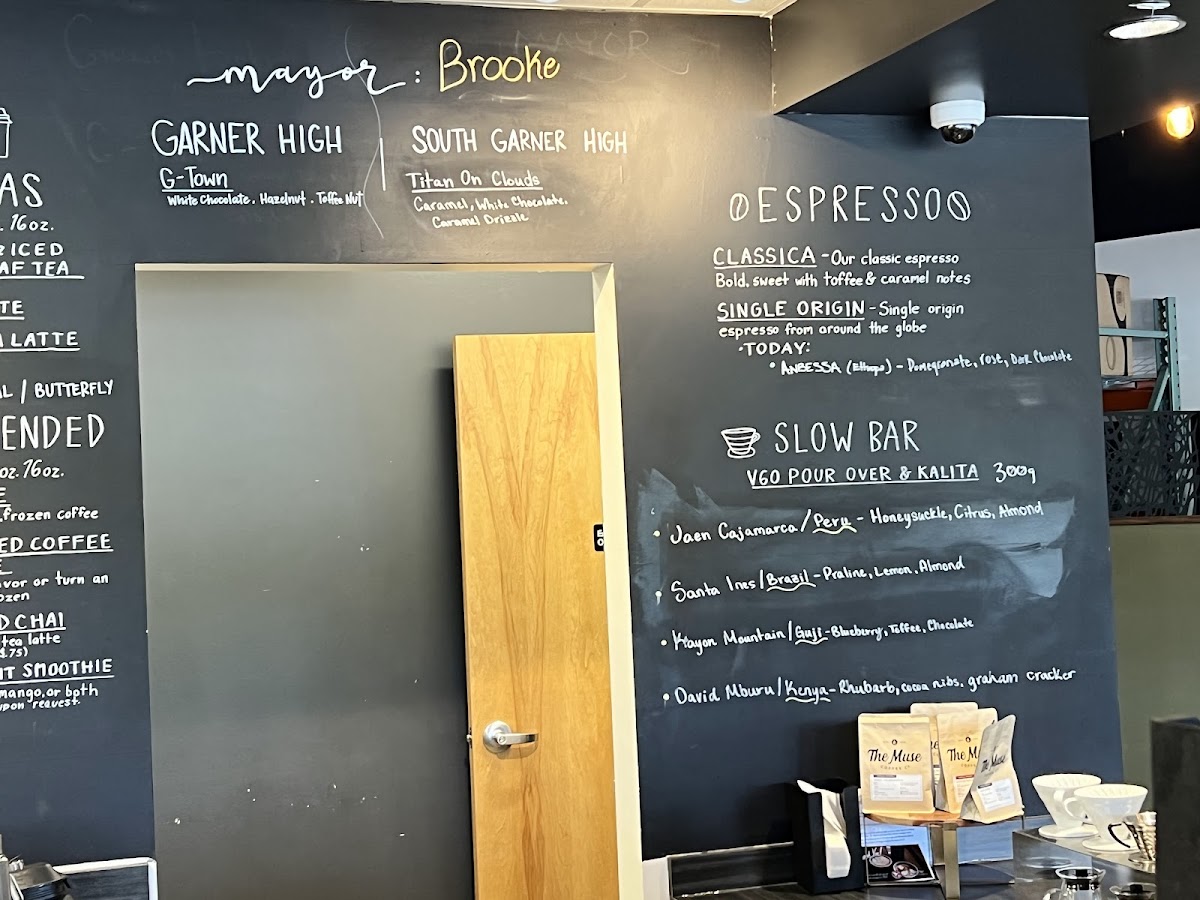 mayor: Brooke
GARNER HIGH
G-Town
White Chocolate. Hazelnut. Toffee Nut
SOUTH GARNER HIGH
Titan On Clouds
Caramel, White Chocolate.
Caramel Drizzle
AS
16oz.
ICED
AF TEA
TE
LATTE
/ BUTTERFLY
ENDED
oz. 16oz.
frozen coffee
ED COFFEE
vor or turn an
ozen
D CHAI
tea latte
.75)
T SMOOTHIE
mango, or both
upon request.
ESPRESSO
CLASSICA - Our classic espresso
Bold, sweet with toffee & caramel notes
SINGLE ORIGIN - Single origin
espresso from around the globe
• TODAY:
• ANBESSA (Ethiopia) - Pomegranate, rose, Dark Chocolate
SLOW BAR
V60 POUR OVER & KALITA 300g
• Jaen Cajamarca / Peru - Honeysuckle, Citrus, Almond
• Santa Ines / Brazil - Praline, Lemon, Almond
• Kayon Mountain / Guji - Blueberry, Toffee, Chocolate
• David Mburu / Kenya - Rhubarb, cocoa nibs, graham cracker
The Muse
COFFEE CO
The M
The Muse